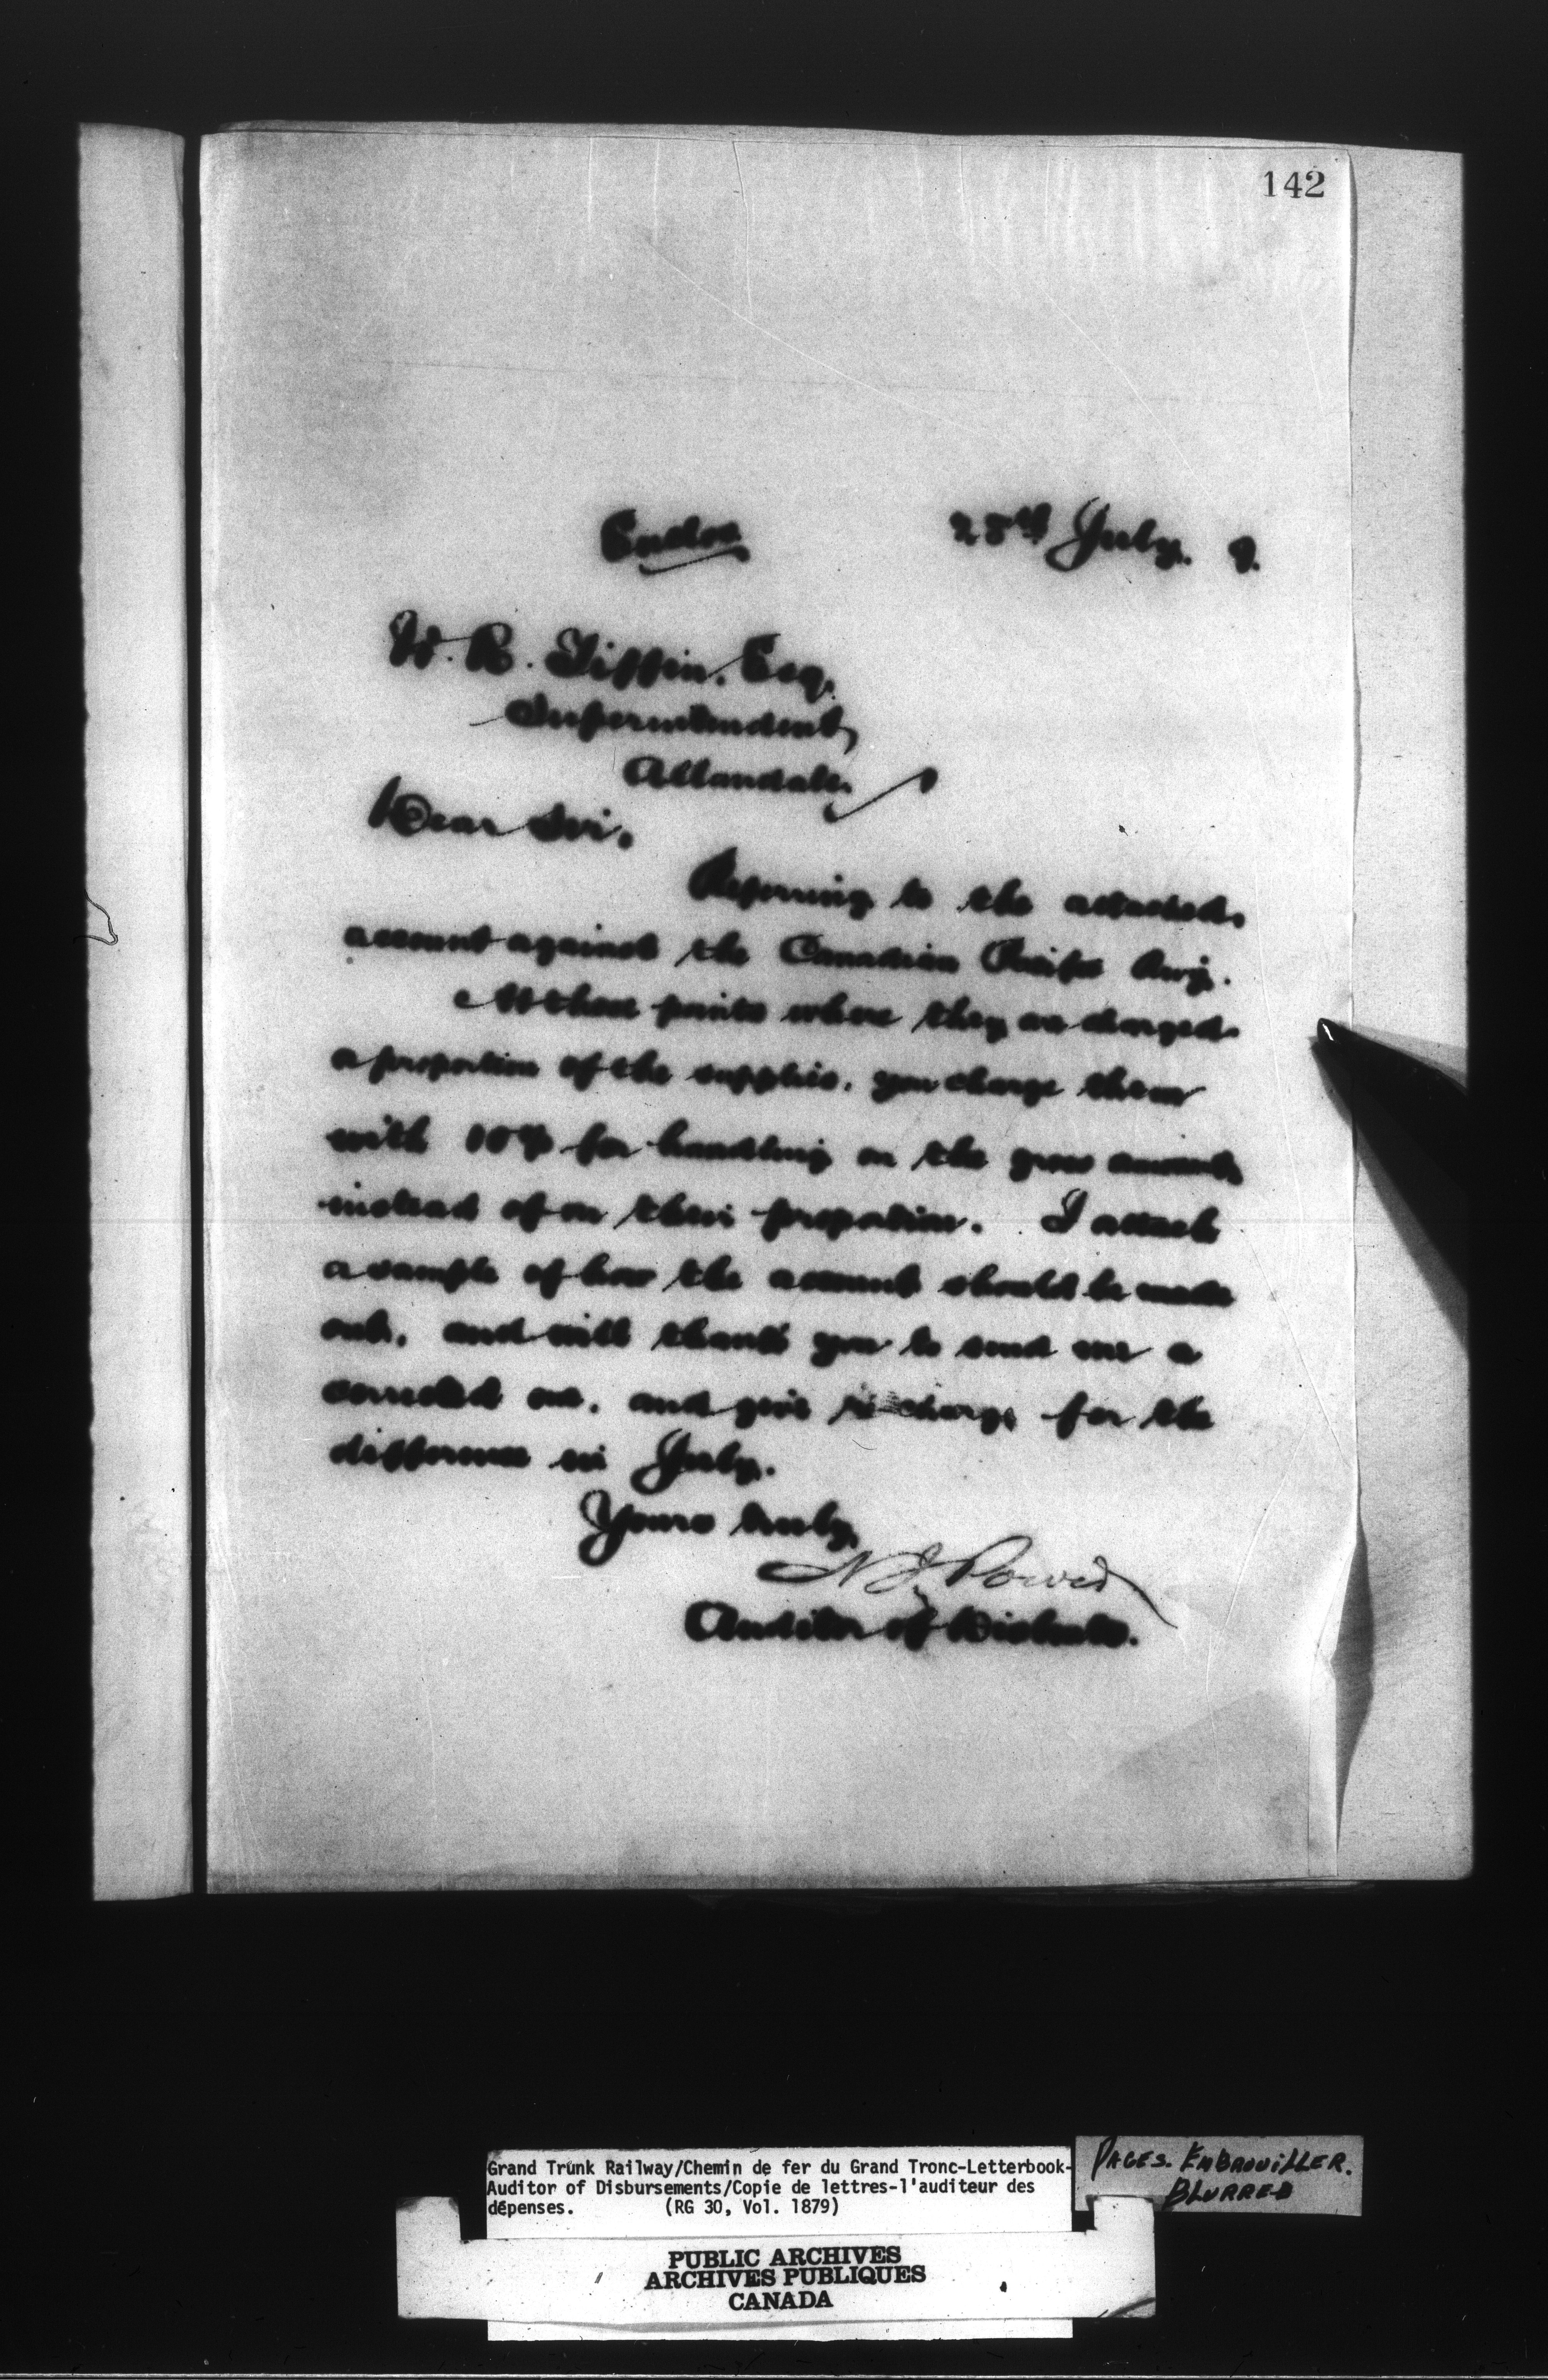 142
Endos
28th July. 9.
W. R. Tiffin. Esq,
Superintendent,
Allandale.
Dear Sir,
Referring to the attached
account against the Canadian Pacific Rwy.
At those points where they are charged
a proportion of the supplies, you charge them
with 10% for handling on the gross amount,
instead of on their proportion. I attach
a sample of how the account should be made
out, and will thank you to send me a
corrected one, and give re-charge for the
difference in July.
Yours truly,
N J Power
Auditor of Disbmts.
Grand Trunk Railway/Chemin de fer du Grand Tronc-Letterbook-
Auditor of Disbursements/Copie de lettres-l'auditeur des
dépenses. (RG 30, Vol. 1879)
PAGES. EMBROUILLER.
BLURRED
PUBLIC ARCHIVES
ARCHIVES PUBLIQUES
CANADA